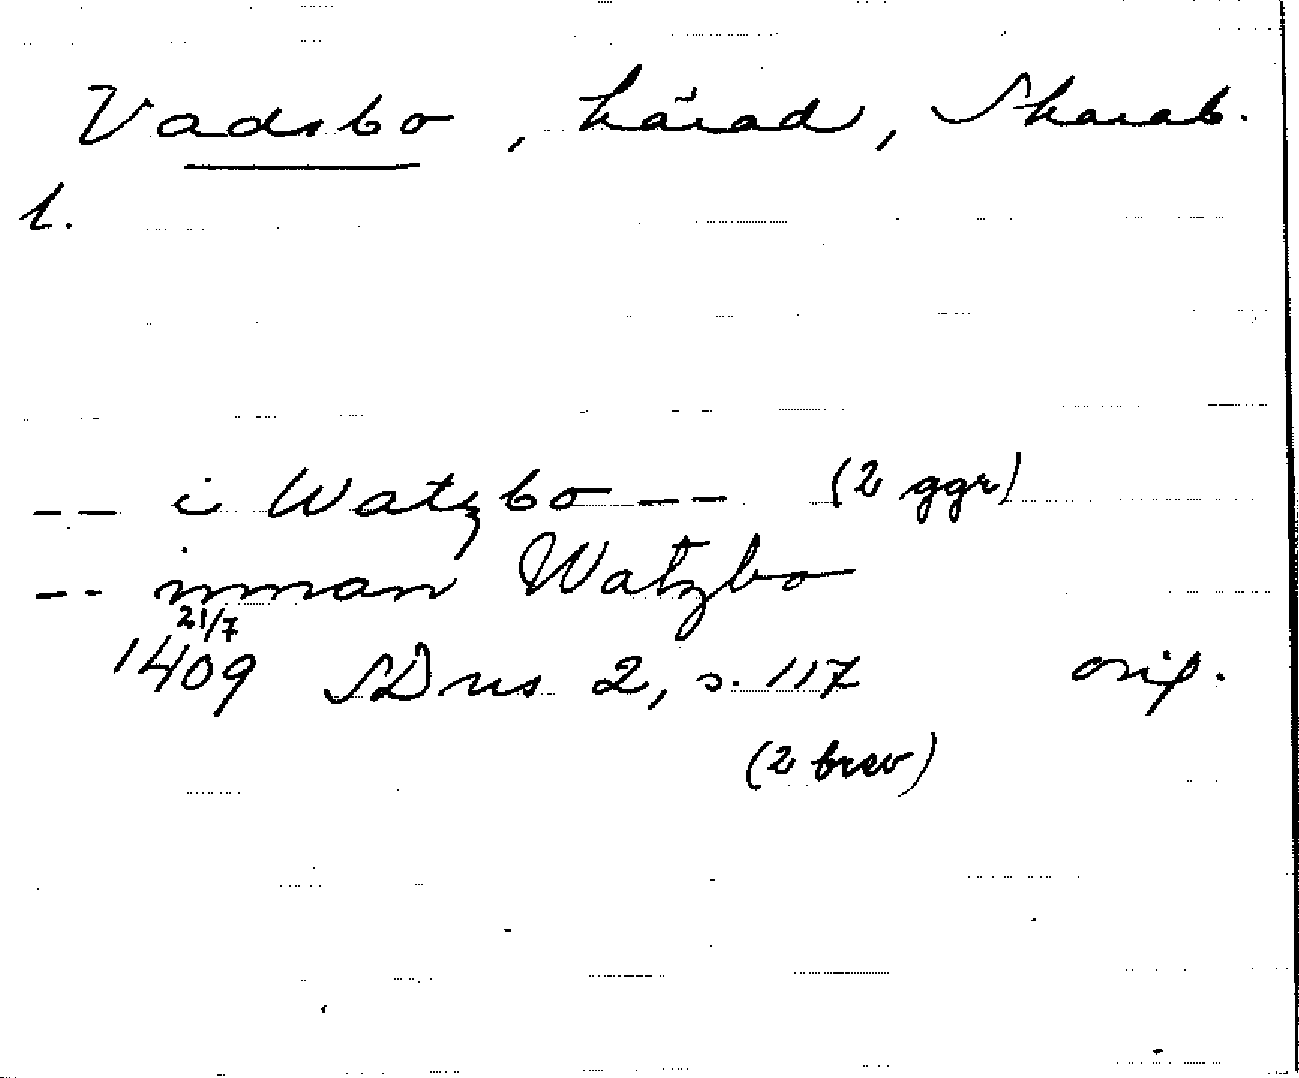 Vadsbo, härad, Skarab.
l.
-- i Watzbo -- (2 ggr)
-- innan Watzbo
21/7
1409 SDns 2, s. 117 orig.
(2 brev)